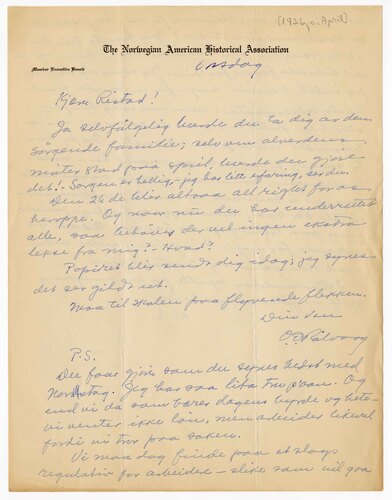 [1926, c. April]
The Norwegian American Historical Association
Member Executive Board
Onsdag
Kjære Ristad!
Ja selvfølgelig burde du ta dig av den
sørgende familie; selv om alverdens
møter stod paa spill, burde du gjøre
det! - Sorgen er hellig, - jeg har litt erfaring, ser du.
Den 26de blir altsaa all right for os
heroppe. Og naar nu du har underrettet
alle, saa behøves der vel ingen ekstra
lekse fra mig? - Hvad?
Papiret blir sendt dig idag; jeg synes
det ser gildt ut.
Maa til skolen paa flyvende flekken.
Din ven
O E Rölvaag
P.S.
Du faar gjøre som du synes bedst med
Jeg har saa lita tru paa'n. Og
end vi da som bærer dagens byrde og hete -
vi venter ikke løn, men arbeider likevel
fordi vi tror paa saken.
Vi maa dog finde paa et slags
regulativ for arbeidet - slike som vil gaa